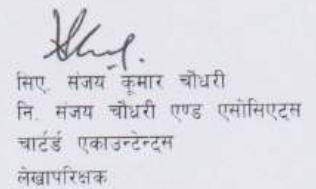 सिए. संजय कुमार चौधरी
नि. संजय चौधरी एण्ड एसोसिएट्स
चार्टर्ड एकाउन्टेन्ट्स
लेखापरिक्षक